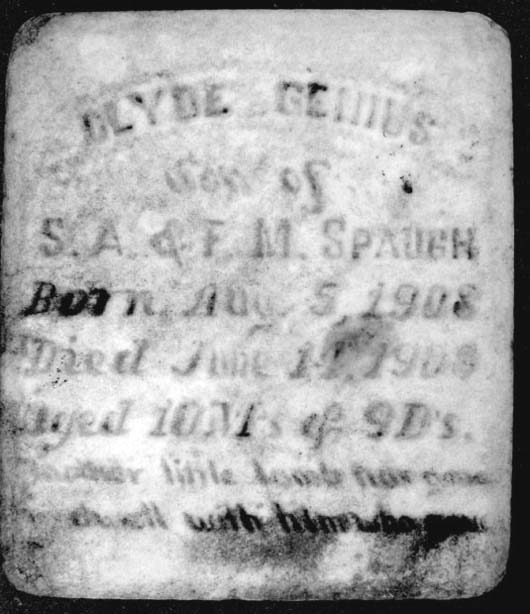 CLYDE GENIUS
Son of
S. A. & F. M. SPAUGH
Born Aug. 5, 1908
Died June 14, 1909
Aged 10 M's & 9 D's.
Another little lamb has gone
dwell with him who gave